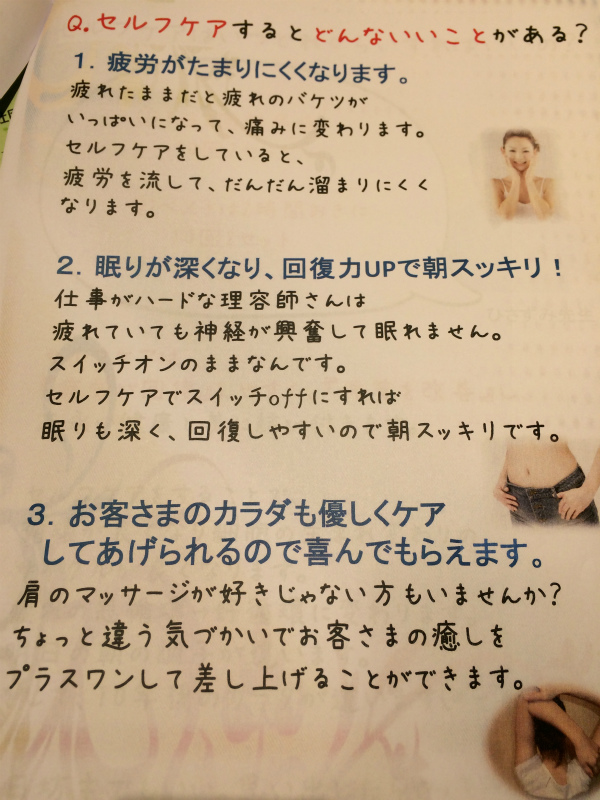 Q.セルフケアするとどんないいことがある?
1. 疲労がたまりにくくなります。
疲れたままだと疲れのバケツが
いっぱいになって、痛みに変わります。
セルフケアをしていると、
疲労を流して、だんだん溜まりにくく
なります。
2. 眠りが深くなり、回復力UPで朝スッキリ!
仕事がハードな理容師さんは
疲れていても神経が興奮して眠れません。
スイッチオンのままなんです。
セルフケアでスイッチoffにすれば
眠りも深く、回復しやすいので朝スッキリです。
3. お客さまのカラダも優しくケア
してあげられるので喜んでもらえます。
肩のマッサージが好きじゃない方もいませんか?
ちょっと違う気づかいでお客さまの癒しを
プラスワンして差し上げることができます。